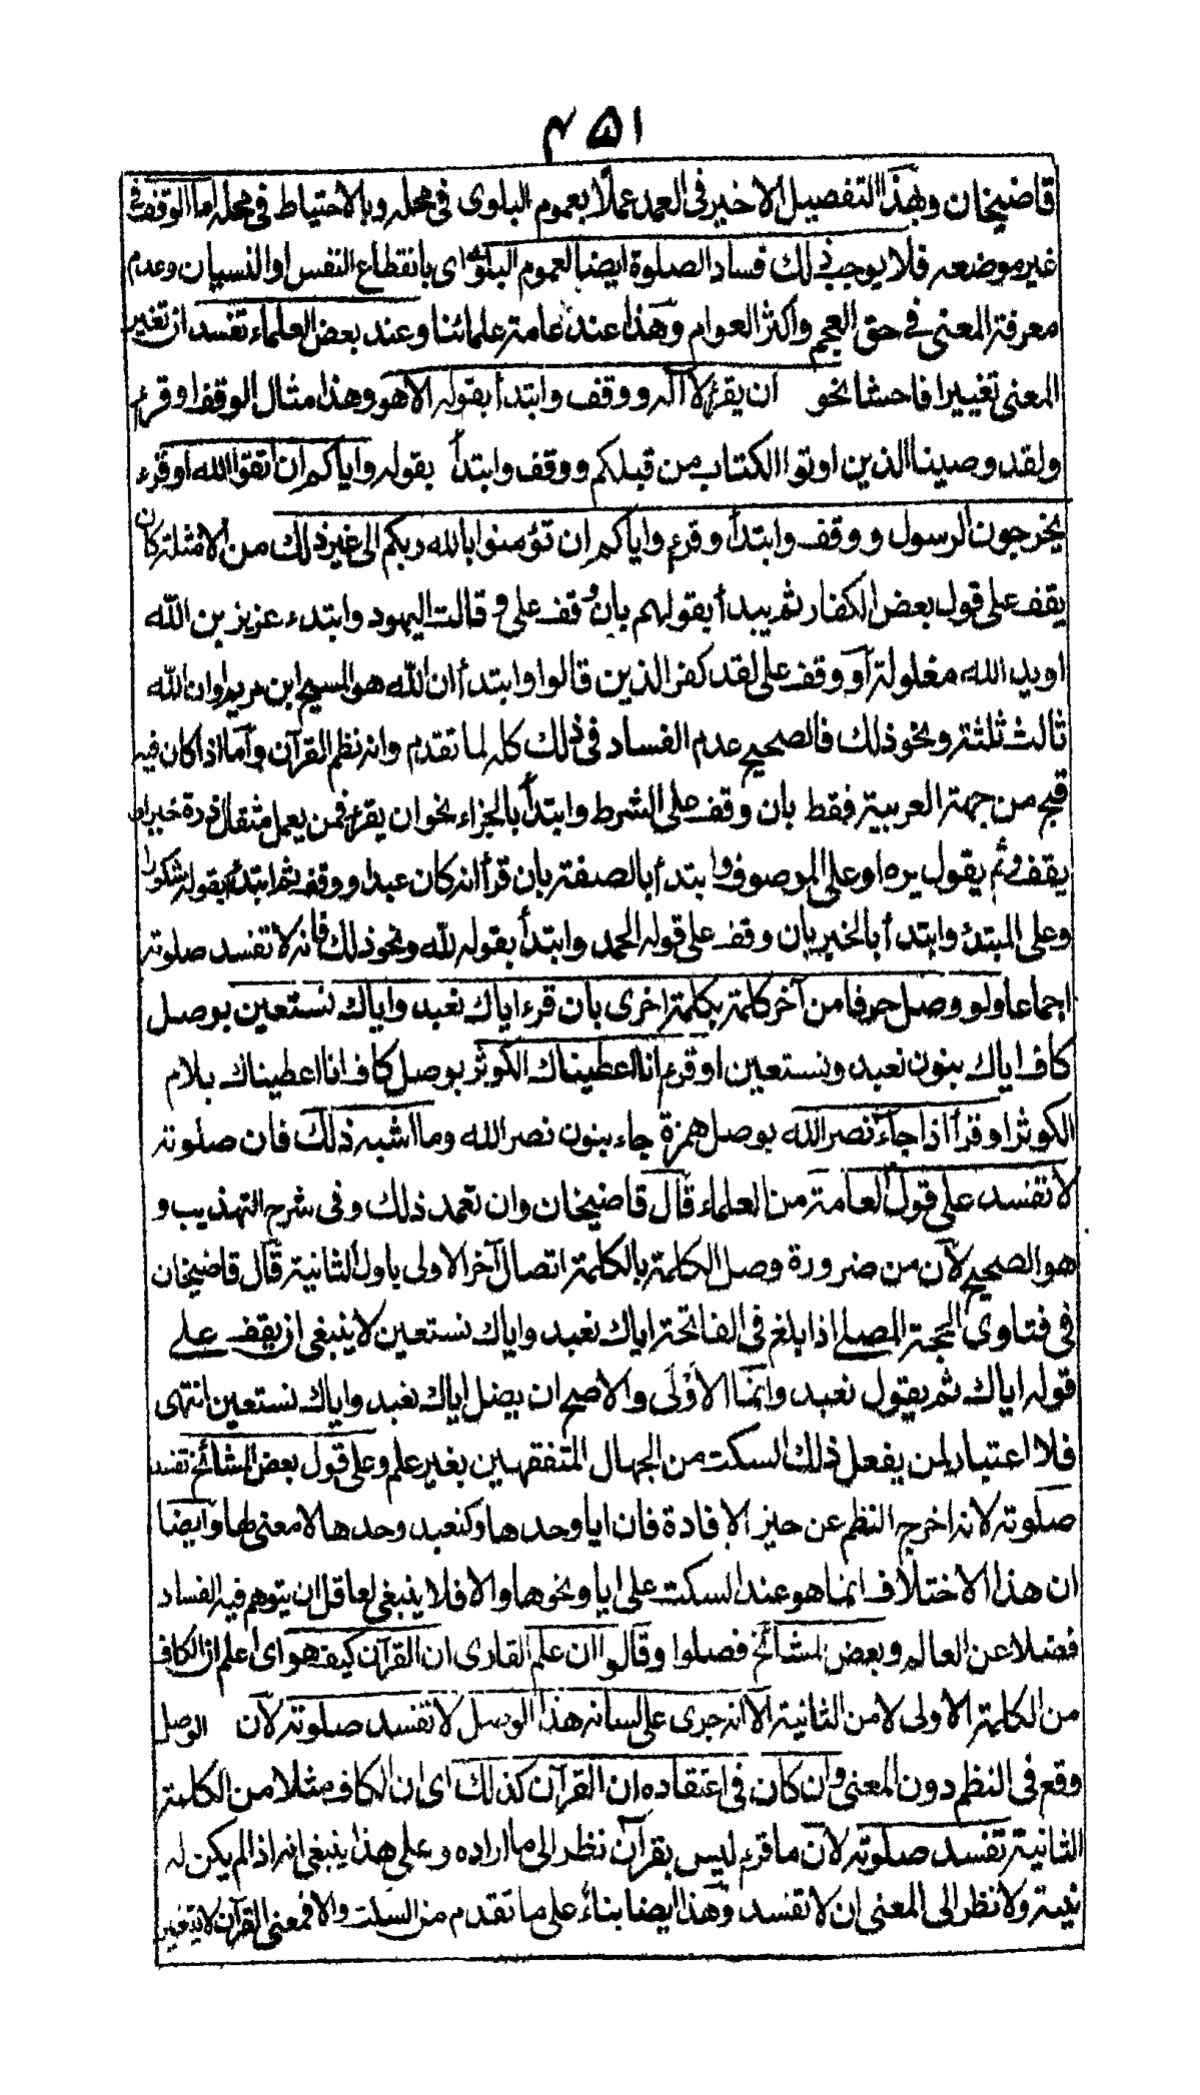 ٤٥١
قاضيخان وبهذا التفصيل الاخير في العمد عملا بعموم البلوى في محله وبالاحتياط في محله اما الوقف في
غير موضعه فلا يوجب ذلك فساد الصلوة ايضا لعموم البلوى اى بانقطاع النفس او النسيان وعدم
معرفة المعنى في حق العجم واكثر العوام وهذا عند عامة علمائنا وعند بعض العلماء تفسد ان تغير
المعنى تغييرا فاحشا نحو ان يقرء لا اله ووقف وابتدأ بقوله الا هو وهذا مثال الوقف او قرء
ولقد وصينا الذين اوتوا الكتاب من قبلكم ووقف وابتدأ بقوله واياكم ان اتقوا الله او قرء
يخرجون الرسول ووقف وابتدأ وقرء واياكم ان تؤمنوا بالله ربكم الى غير ذلك من الامثلة كان
يقف على قول بعض الكفار ثم يبدأ بقولهم بان وقف على وقالت اليهود وابتدء عزيز بن الله
او يد الله مغلولة او وقف على لقد كفر الذين قالوا وابتدأ ان الله هو المسيح ابن مريم او ان الله
ثالث ثلثة ونحو ذلك فالصحيح عدم الفساد في ذلك كله لما تقدم وانه نظم القرآن وأما اذا كان فيه
قبح من جهة العربية فقط بان وقف على الشرط وابتدأ بالجزاء نحو ان يقرء فمن يعمل مثقال ذرة خيرا و
يقف ثم يقول يره او على الموصوف وابتدأ بالصفة بان قرأ انه كان عبدا ووقف ثم ابتدأ بقوله شكورا
وعلى المبتدئ وابتدأ بالخبر بان وقف على قوله الحمد وابتدأ بقوله لله ونحو ذلك فانه لا تفسد صلوته
اجماعا ولو وصل حرفا من آخر كلمة بكلمة اخرى بان قرء اياك نعبد واياك نستعين بوصل
كاف اياك بنون نعبد ونستعين او قرء انا اعطيناك الكوثر بوصل كاف انا اعطيناك بلام
الكوثر او قرأ اذا جاء نصر الله بوصل همزة جاء بنون نصر الله وما اشبه ذلك فان صلوته
لا تفسد على قول العامة من العلماء قال قاضيخان وان تعمد ذلك وفى شرح التهذيب و
هو الصحيح لان من ضرورة وصل الكلمة بالكلمة اتصال آخر الاولى باول الثانية قال قاضيخان
في فتاوى الحجة المصلى اذا بلغ في الفاتحة اياك نعبد واياك نستعين لا ينبغى ان يقف على
قوله اياك ثم يقول نعبد وانما الاولى والاصح ان يصل اياك نعبد واياك نستعين انتهى
فلا اعتبار لمن يفعل ذلك السكت من الجهال المتفقهين بغير علم وعلى قول بعض المشائخ تفسد
صلوته لانه اخرج النظم عن حيز الافادة فان ايا وحدها وكنعبد وحدها لا معنى لها وايضا
ان هذا الاختلاف انما هو عند السكت على ايا ونحوها والا فلا ينبغى لعاقل ان يتوهم فيه الفساد
فضلا عن العالم وبعض المشائخ فصلوا وقالوا ان علم القارى ان القرآن كيف هو اى علم ان الكاف
من الكلمة الاولى لا من الثانية الا انه جرى على لسانه هذا الوصل لا تفسد صلوته لان الوصل
وقع في النظم دون المعنى وان كان في اعتقاده ان القرآن كذلك اى ان الكاف مثلا من الكلمة
الثانية تفسد صلوته لان ما قرء ليس بقرآن نظر الى ما اراده وعلى هذا ينبغى انه اذا لم يكن له
نية ولا نظر الى المعنى ان لا تفسد وهذا ايضا بناء على ما تقدم من السكت والا فمعنى القرآن لا يتغير